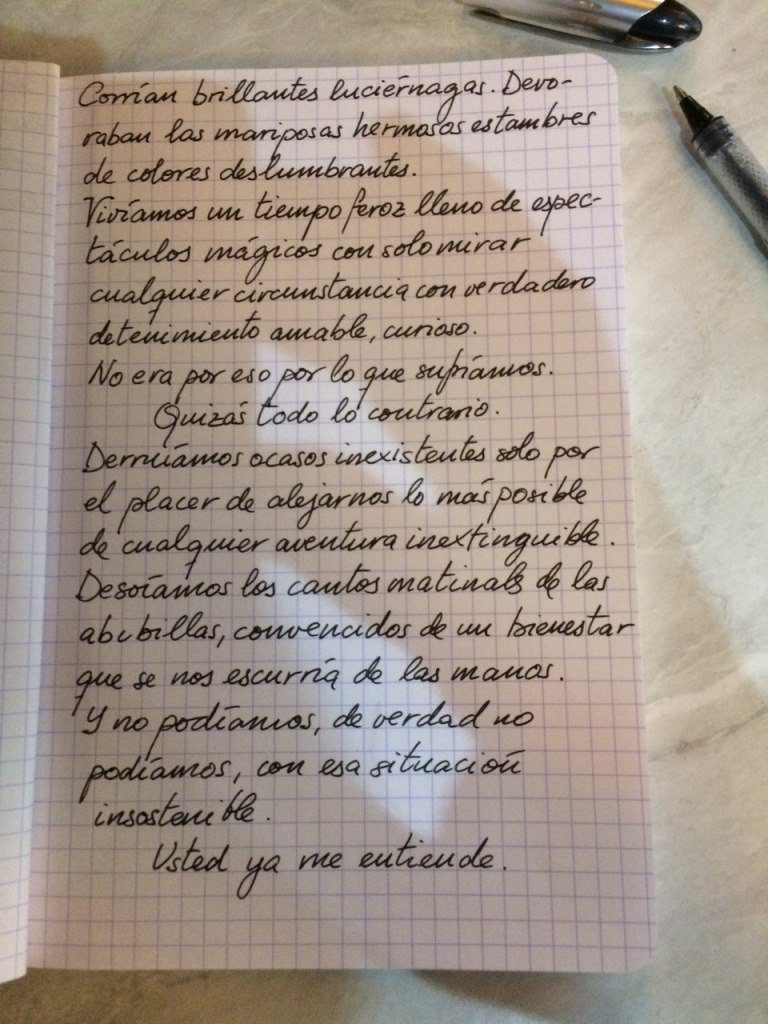 Corrían brillantes luciérnagas. Devo-
raban las mariposas hermosos estambres
de colores deslumbrantes.
Vivíamos un tiempo feroz lleno de espec-
táculos mágicos con solo mirar
cualquier circunstancia con verdadero
detenimiento amable, curioso.
No era por eso por lo que sufríamos.
Quizás todo lo contrario.
Derruíamos ocasos inexistentes solo por
el placer de alejarnos lo más posible
de cualquier aventura inextinguible.
Desoíamos los cantos matinales de las
abubillas, convencidos de un bienestar
que se nos escurría de las manos.
Y no podíamos, de verdad no
podíamos, con esa situación
insostenible.
Usted ya me entiende.